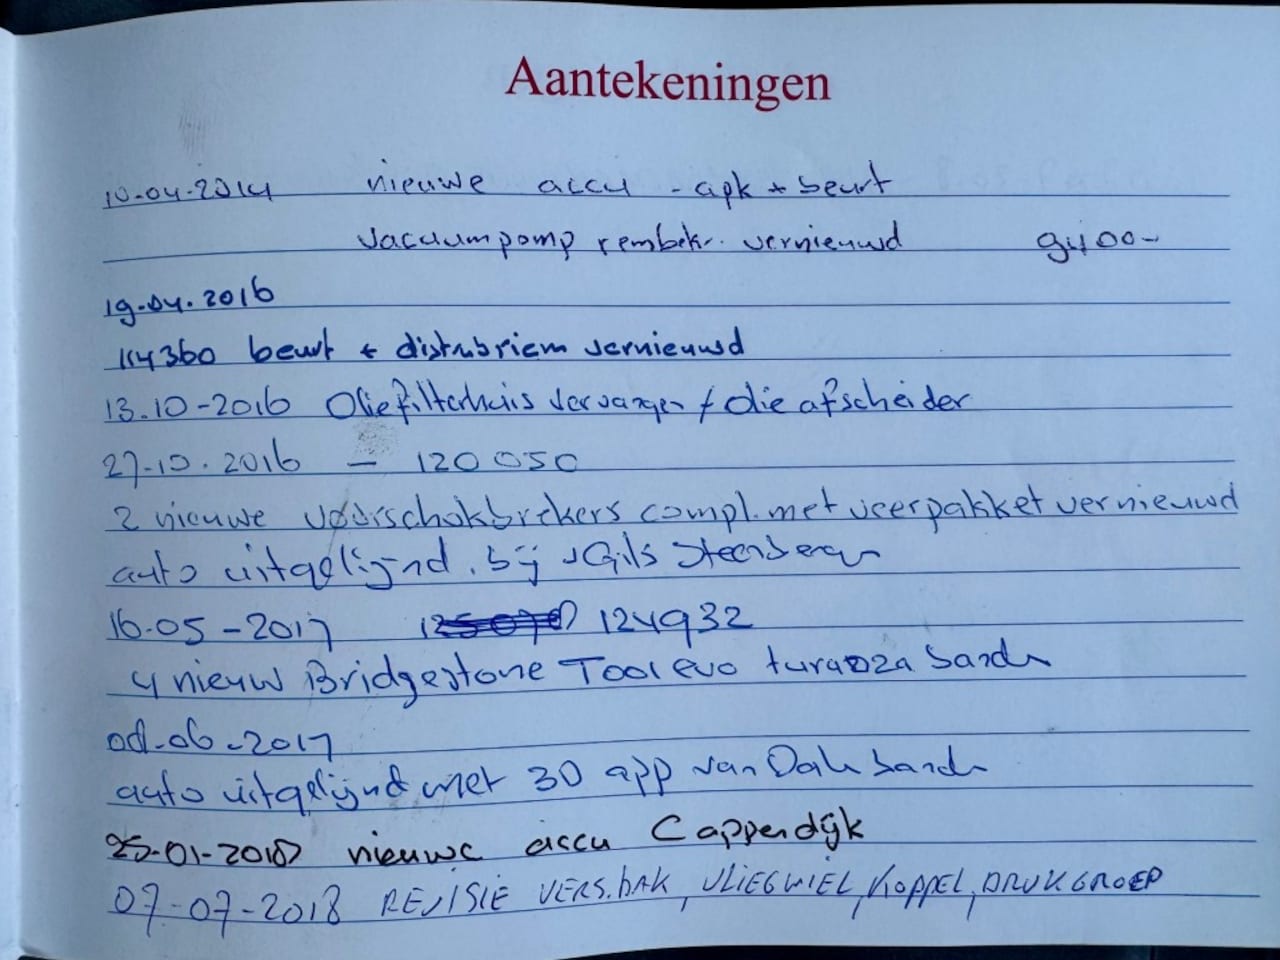 Aantekeningen
10-04-2014 nieuwe accu - apk + beurt
vacuumpomp rembekr. vernieuwd 9400-
19-04-2016
114360 beurt + distribriem vernieuwd
13-10-2016 Oliefilterhuis vervangen / olie afscheider
27-10-2016 - 120050
2 nieuwe voorschokbrekers compl. met veerpakket vernieuwd
auto uitgelijnd. bij vGils Steenbergen
16-05-2017 124932
4 nieuw Bridgestone T001 evo turanza banden
-06-2017
auto uitgelijnd met 3D app van Dale banden
25-01-2018 nieuwe accu Cappendijk
07-07-2018 REVISIE VERS.bAK, VLIEGWIEL, KOPPEL, DRUKGROEP